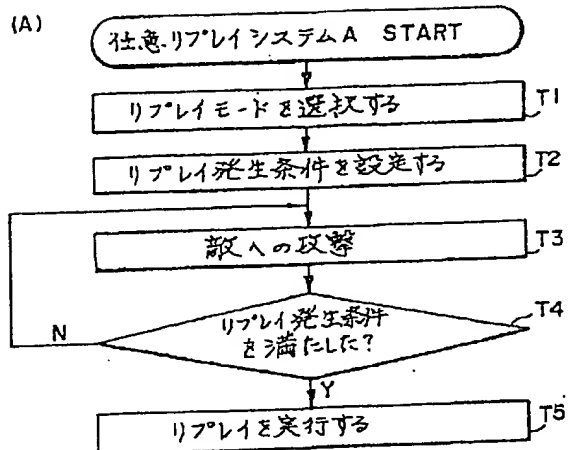 (A)
任意リプレイシステムA START
リプレイモードを選択する
T1
リプレイ発生条件を設定する
T2
敵への攻撃
T3
リプレイ発生条件
を満たした?
T4
N
Y
リプレイを実行する
T5